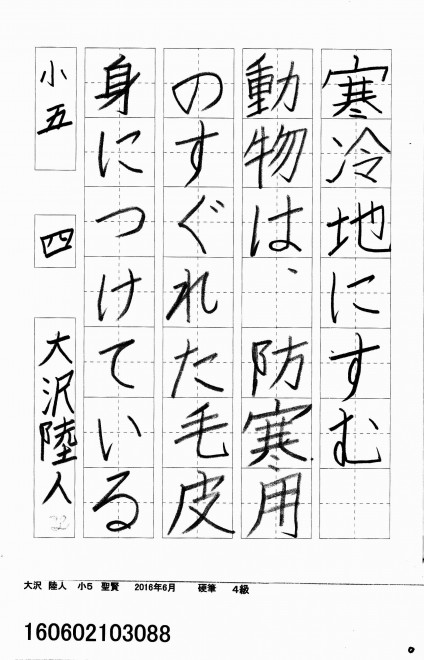 寒冷地にすむ
動物は、防寒用
のすぐれた毛皮
身につけている
小五 四 大沢陸人
32
大沢 陸人 小5 聖賢 2016年6月 硬筆 4級
160602103088